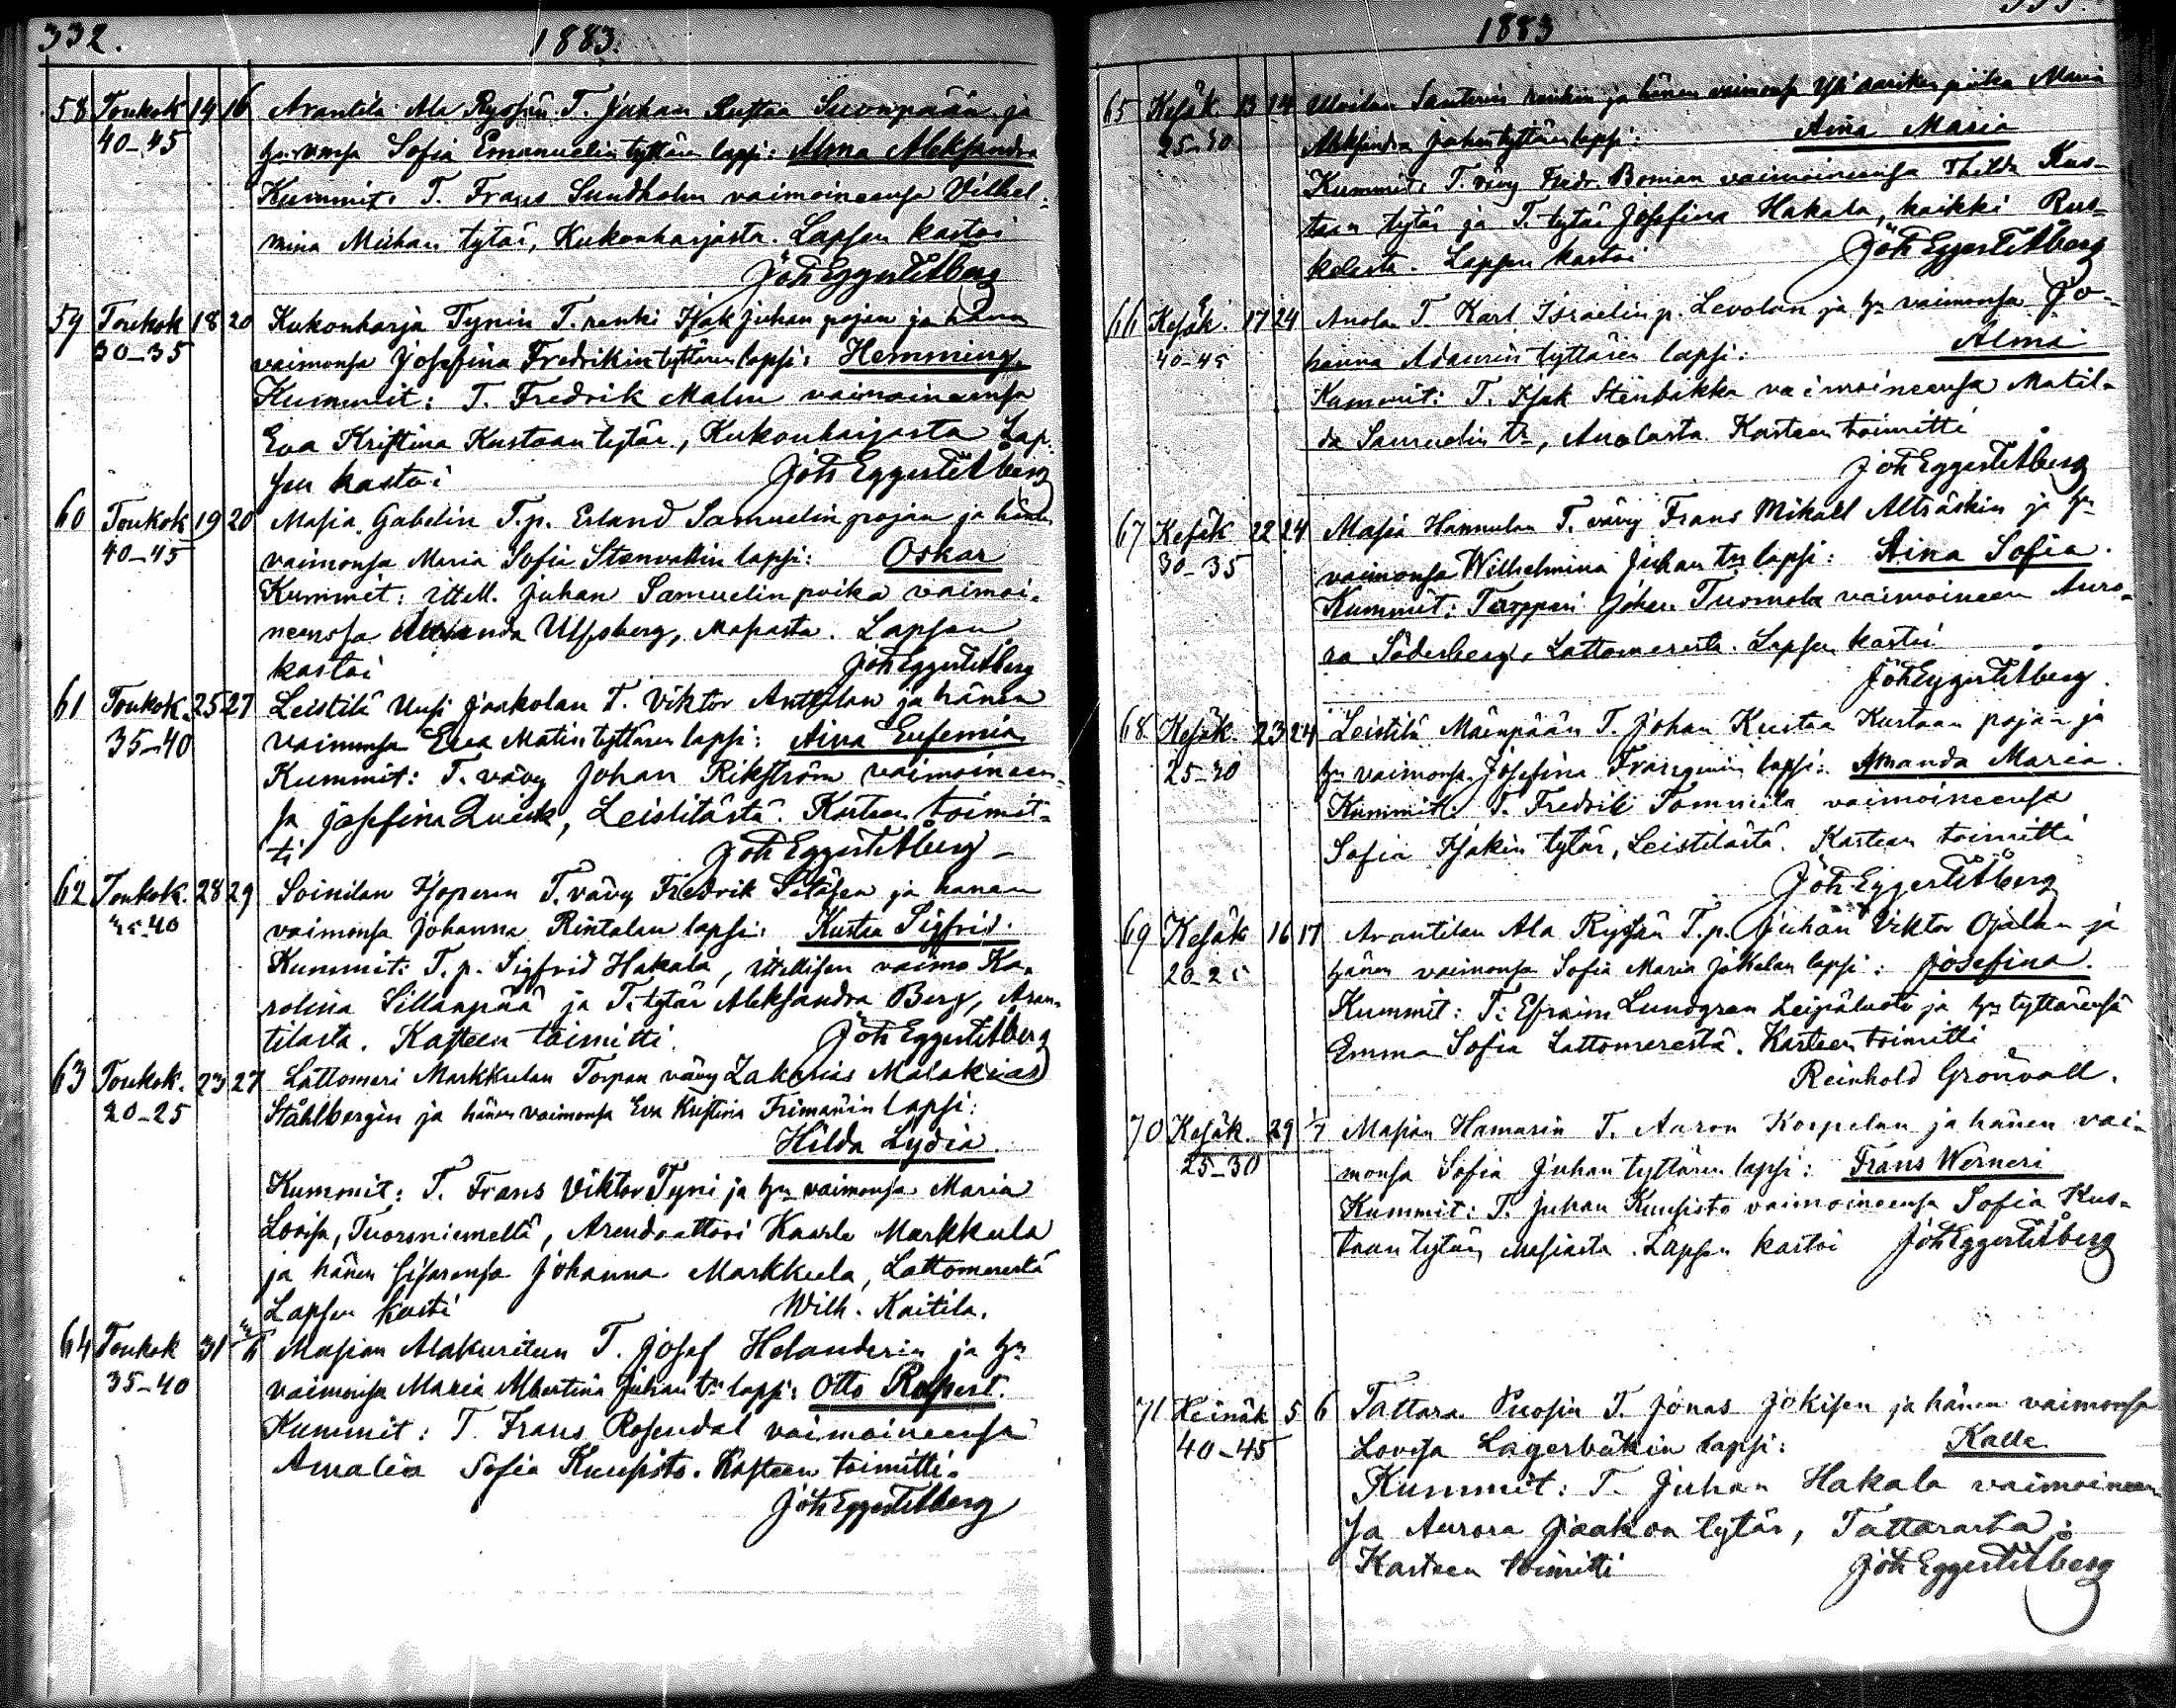 332.
1883.
58 Toukok 14 16 Arantila Ala Ryssän T. Juhan Kustaa Suonpään ja
40-45 hn vaimonsa Sofia Emanuelin tyttären lapsi: Alma Aleksandra
Kummit: T. Frans Sundholm vaimoineensa Vilhel-
mina Mikhan tytär, Kukonharjasta. Lapsen kastoi
Joh Eggert Titberg
59 Toukok 18 20 Kukonharja Tynin T. renki Isak Juhan pojan ja hänen
30-35 vaimonsa Josefina Fredrikin tyttären lapsi: Hemming.
Kummit: T. Fredrik Malm vaimoineensa
Eva Kristina Kustaan tytär, Kukonharjasta Lap-
sen kastoi Joh Eggert Titberg
60 Toukok 19 20 Masia Gabelin T.p. Erland Samuelin pojan ja hänen
40-45 vaimonsa Maria Sofia Stenvallin lapsi: Oskar
Kummit: Ittell. Juhan Samuelin poika vaimoi-
neensa Ulfsberg, Masiasta. Lapsen
kastoi Joh Eggert Titberg
61 Toukok. 25 27 Leistilä Uusi Jaakolan T. Viktor Anttilan ja hänen
35-40 vaimonsa Eva Matin tyttären lapsi: Aina Eufemia
Kummit: T. vävy Johan Rikström vaimoineen-
sa Josefina Queck, Leistilästä. Kasteen toimit-
ti Joh Eggert Titberg
62 Toukok. 28 29 Soinilan Isoperen T. vävy Fredrik Selåsen ja hänen
35-40 vaimonsa Johanna Rintalan lapsi: Kustaa Sigfrid.
Kummit: T. p. Sigfrid Hakala, Ittellisen vaimo Ka-
rolina Sillanpää ja T. tytär Aleksandra Berg, Aran-
tilasta. Kasteen toimitti. Joh Eggert Titberg
63 Toukok. 23 27 Lattomeri Markkulan Torpan vävy Zakarias Malakias
20-25 Ståhlbergin ja hänen vaimonsa Eva Kristina Frimanin lapsi:
Hilda Lydia.
Kummit: T. Frans Viktor Tyni ja hn vaimonsa Maria
Lovisa, Tuorsniemeltä, Arendaattori Kaarle Markkula
ja hänen sisarensa Johanna Markkula, Lattomerestä
Lapsen kasti Wilh. Kaitila.
64 Toukok 31 Masian Alakuritun T. Josef Helanderin ja hn
35-40 vaimonsa Maria Albertina Juhan tr lapsi: Otto Robert.
Kummit: T. Frans Rosendal vaimoineensa
Amalia Sofia Kuusisto. Kasteen toimitti.
Joh Eggert Titberg
1883
65 Kesäk. 13 24 Santerin renkin ja hänen vaimonsa Maria
25-30 Aleksandra Juhan tyttären lapsi: Aina Maria
Kummit: T. vävy Fredr. Boman vaimoineensa Thilda Kus-
taan tytär ja T. tytär Josefina Hakala, kaikki Rus-
kelasta. Lapsen kastoi Joh Eggert Titberg
66 Kesäk. 17 24 Anolan T. Karl Israelin p. Levolan ja hn vaimonsa Jo-
40-45 hanna Adamin tyttären lapsi: Alma
Kummit: T. Isak Stenbikka vaimoineensa Matil-
da Samuelin tr, Anolasta Kasteen toimitti
Joh Eggert Titberg
67 Kesäk 22 24 Masia Hannulan T. vävy Frans Mikael Alträskin ja hn
30-35 vaimonsa Wilhelmina Juhan trn lapsi: Aina Sofia.
Kummit: Torppari Johan Tuomola vaimoineen Auro-
ra Söderberg, Lattomeresta. Lapsen kastoi
Joh Eggert Titberg.
68 Kesäk. 23 24 Leistilä Mäenpään T. Johan Kustaa Kustaan pojan ja
25-30 hn vaimonsa Josefina lapsi: Amanda Maria.
Kummit: T. Fredrik Tommila vaimoineensa
Sofia Isakin tytär, Leistilästä. Kasteen toimitti
Joh Eggert Titberg
69 Kesäk 16 17 Arantilan Ala Ryssän T.p. Juhan Viktor Ojalan ja
20-25 hänen vaimonsa Sofia Maria Jokelan lapsi: Josefina.
Kummit: T. Efraim Lundgran Leipäluoto ja hn tyttärensä
Emma Sofia Lattomerestä. Kasteen toimitti
Reinhold Grönvall.
70 Kesäk. 29 1/7 Masian Hamarin T. Aaron Korpelan ja hänen vai-
25-30 monsa Sofia Juhan tyttären lapsi: Frans Werneri
Kummit: T. Juhan Kuusisto vaimoineensa Sofia Kus-
taan tytär, Masiasta. Lapsen kastoi Joh Eggert Titberg
71 Heinäk 5 6 Tattara Puosin T. Jonas Jokisen ja hänen vaimonsa
40-45 Lovisa Lagerbäkin lapsi: Kalle
Kummit: T. Juhan Hakala vaimoineen
sa Aurora Jaakon tytär, Tattarasta.
Kasteen toimitti Joh Eggert Titberg